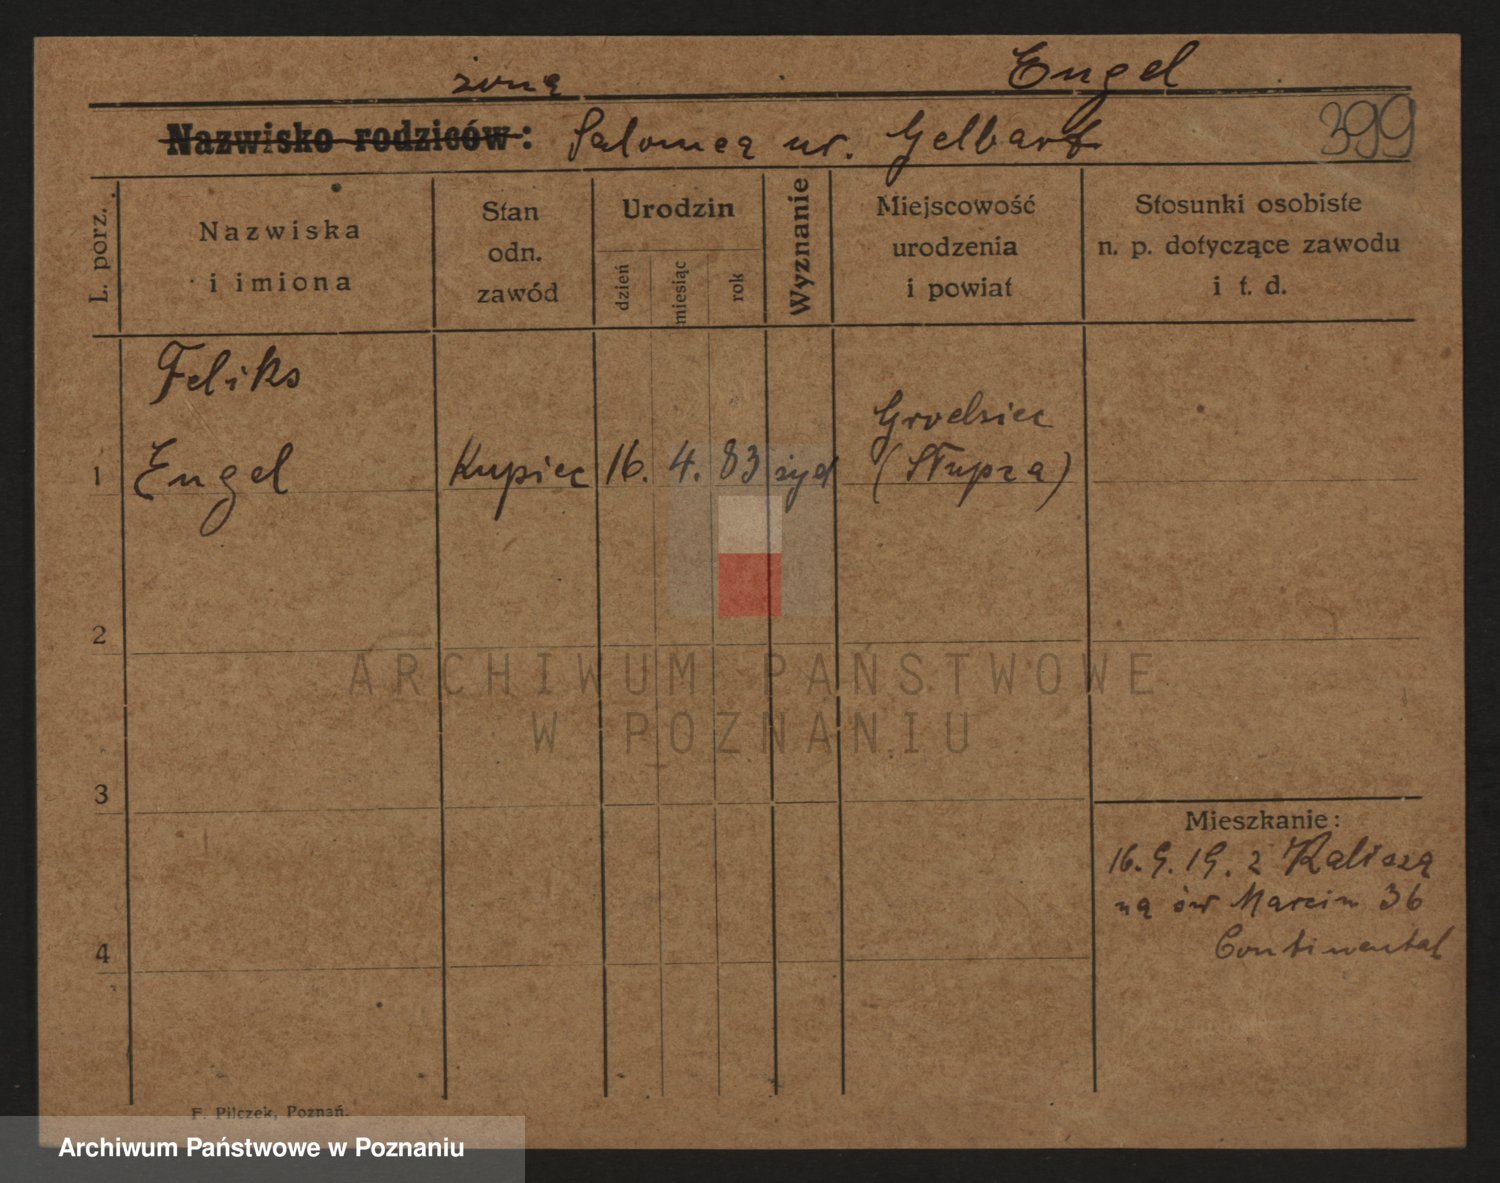 żona Engel
Nazwisko rodziców: Salomea ur. Gelbart 399
L. porz.
Nazwiska
i imiona
Stan
odn.
zawód
Urodzin
dzień
miesiąc
rok
Wyznanie
Miejscowość
urodzenia
i powiat
Stosunki osobiste
n. p. dotyczące zawodu
i t. d.
Feliks Grodziec
1 Engel Kupiec 16. 4. 83 żyd (Słupca)
2
ARCHIWUM PAŃSTWOWE
W POZNANIU
3
Mieszkanie:
16. 9. 19. z Kalisza
na św Marcin 36
Continental
4
F. Pilczek, Poznań.
Archiwum Państwowe w Poznaniu